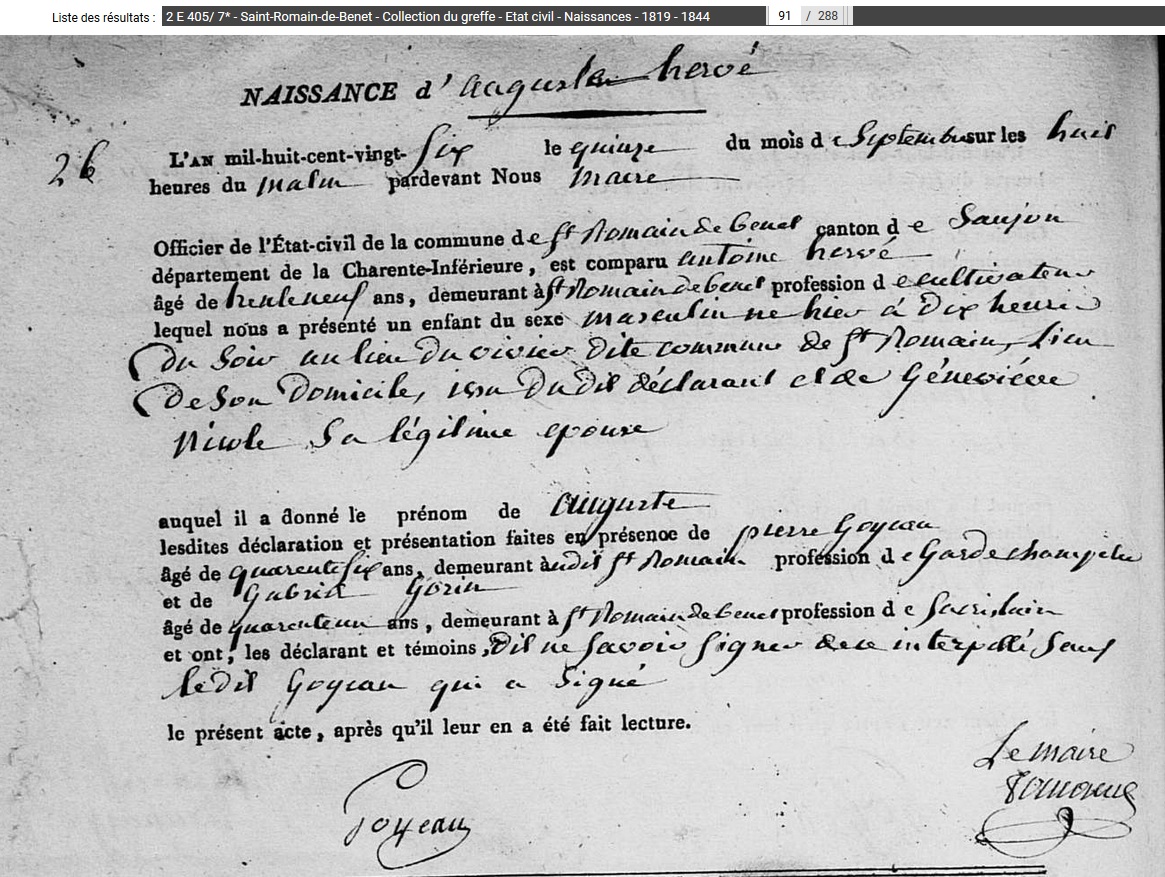 Liste des résultats : 2 E 405/ 7* - Saint-Romain-de-Benet - Collection du greffe - Etat civil - Naissances - 1819 - 1844 91 / 288
NAISSANCE d' auguste hervé
26
L'AN mil-huit-cent-vingt-six le quinze du mois de Septembre sur les huit
heures du matin pardevant Nous maire
Officier de l'État-civil de la commune de st Romain de benet canton de Saujon
département de la Charente-Inférieure, est comparu antoine hervé
âgé de trenteneuf ans, demeurant à st Romain de benet profession de cultivateur
lequel nous a présenté un enfant du sexe masculin ne hier à Dix heures
Du Soir au lieu Du vivier Dite commune de st Romain, Lieu
De Son Domicile, issu Dudit déclarant et de Géneviéve
Nicole Sa légitime epouse
auquel il a donné le prénom de auguste
lesdites déclaration et présentation faites en présence de pierre Goyeau
âgé de quarente six ans, demeurant à udit st Romain profession de Gardechampetre
et de Gabriel Gorin
âgé de quarenteun ans, demeurant à st Romain de benet profession de Sacristain
et ont, les déclarant et témoins, Dit ne Savoir Signer de ce interpellé Sauf
ledit Goyeau qui a Signé
le présent acte, après qu'il leur en a été fait lecture.
Le maire
Goyeau